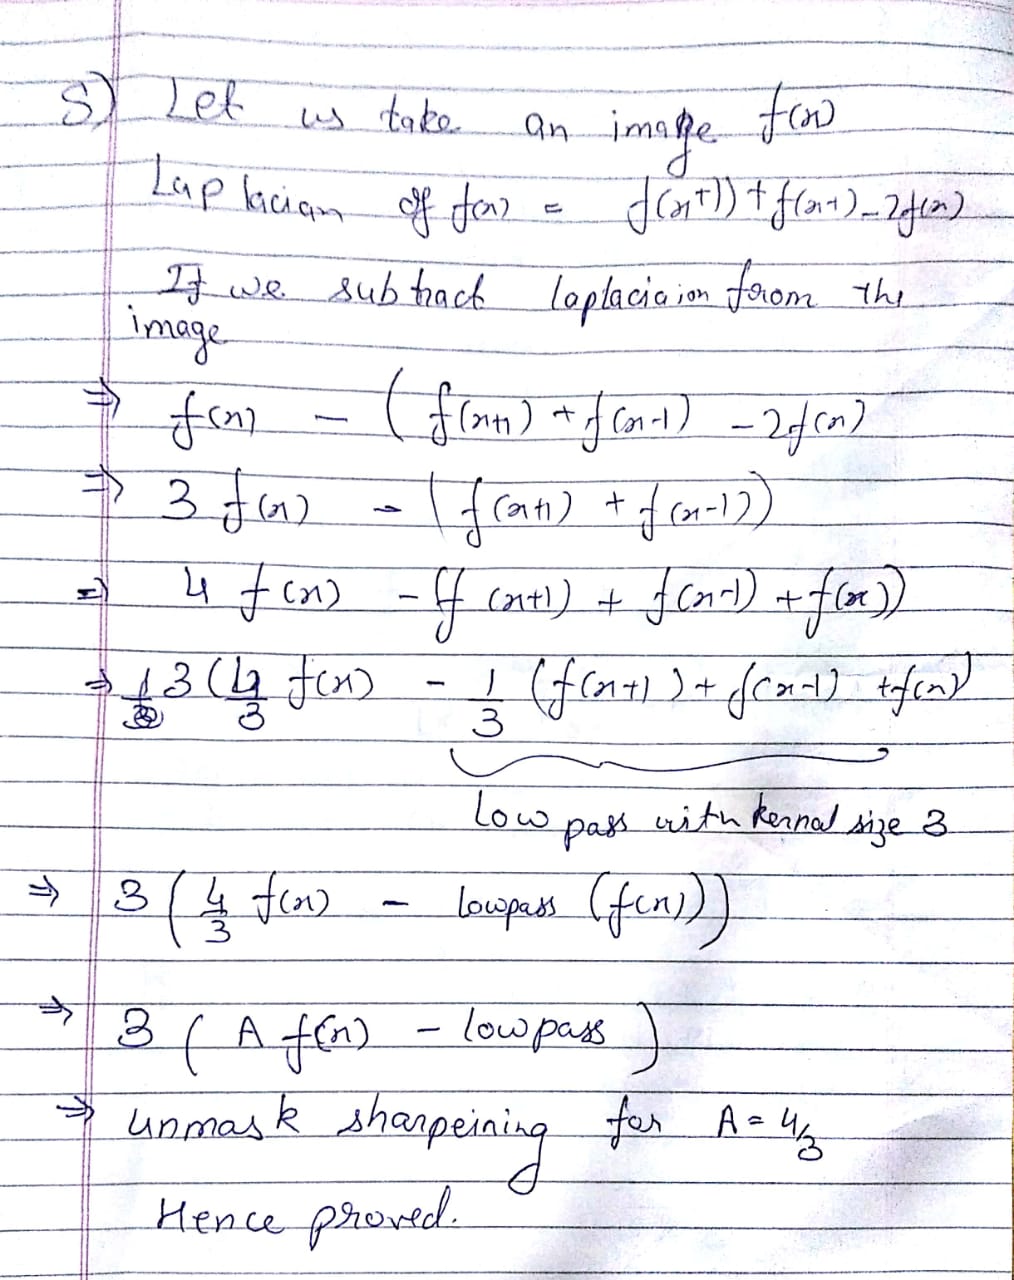 5) Let us take an image f(x)
Laplacian of f(x) = f(x+1) + f(x-1) - 2f(x)
If we subtract laplaciaion from the
image
⇒ f(x) - ( f(x+1) + f(x-1) - 2f(x)
⇒ 3 f(x) - ( f(x+1) + f(x-1))
⇒ 4 f(x) - (f (x+1) + f(x-1) + f(x))
⇒ 3 ( 4/3 f(x) - 1/3 (f(x+1) + f(x-1) + f(x)
Low pass with kernal size 3
⇒ 3 ( 4/3 f(x) - lowpass (f(x)))
⇒ 3 ( A f(x) - low pass )
⇒ unmask sharpeining for A = 4/3
Hence proved.